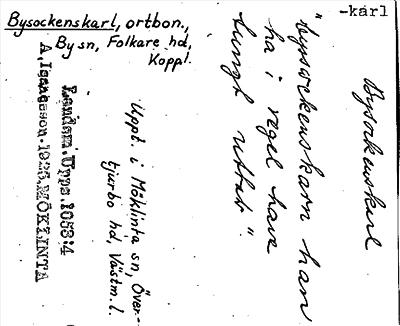 Bysockenskarl, ortbon.,
By sn, Folkare hd,
Koppl.
-karl
Bysockenskarl
"bysockenskarn han
ha i regel have
tungt uttal"
Uppt. i Möklinta sn, Över-
tjurbo hd, Västm. l.
Landsm. Upps. 1053:4
A. Isaacsson. 1925. MÖKLINTA